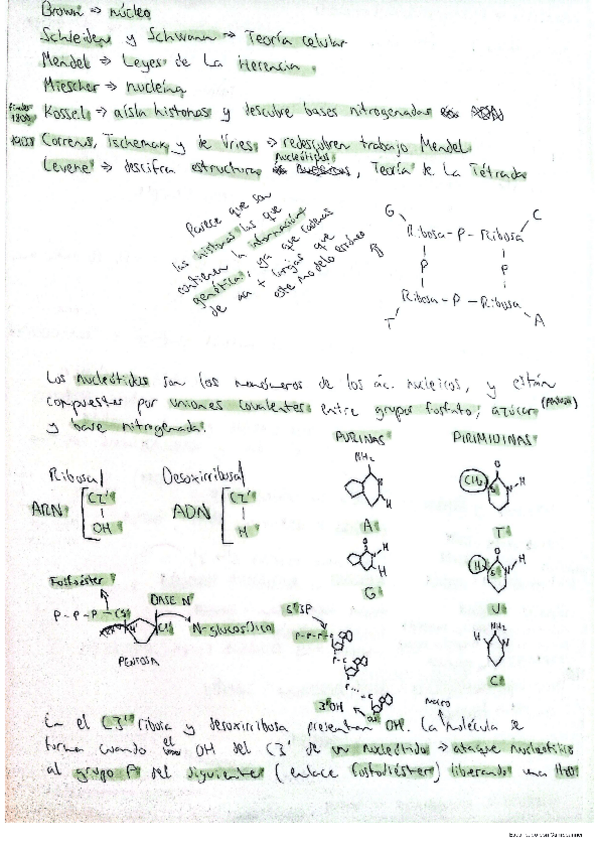 Brown ⇒ núcleo
Schleiden y Schwann ⇒ Teoría celular
Mendel ⇒ Leyes de La Herencia.
Miescher ⇒ nucleína
finales 1800 Kossel ⇒ aísla histonas y descubre bases nitrogenadas
1900 Correns, Tschemak y de Vries ⇒ redescubren trabajo Mendel
Levene ⇒ descifra estructura nucleótidos, Teoría de La Tétrada
Parece que son
las histonas las que
contienen la información
genética, ya que cadenas
de aa + largas que
este modelo erróneo
G C
Ribosa - P - Ribosa
P P
Ribosa - P - Ribosa
T A
Los nucleótidos son los monómeros de los ác. nucleicos, y están
compuestos por uniones covalentes entre grupos fosfato, azúcar (pentosa)
y base nitrogenada.
PURINAS PIRIMIDINAS
Ribosa Desoxirribosa
ARN C2' OH ADN C2' H
NH2 H
A
O H
G
CH3 5 O H
T
H 5 O H
U
NH2 H N
C
Fosfoéster
BASE N
P-P-P-C5' 4' C1' N-glucosídico
PENTOSA
5' 3P
P-P-P
P-C
P...
3' OH
En el C3' ribosa y desoxirribosa presentan OH. La molécula se
macro
forma cuando el OH del C3' de un nucleótido ⇒ ataque nucleofílico
al grupo P del siguiente (enlace fosfodiéster) liberando una H2O